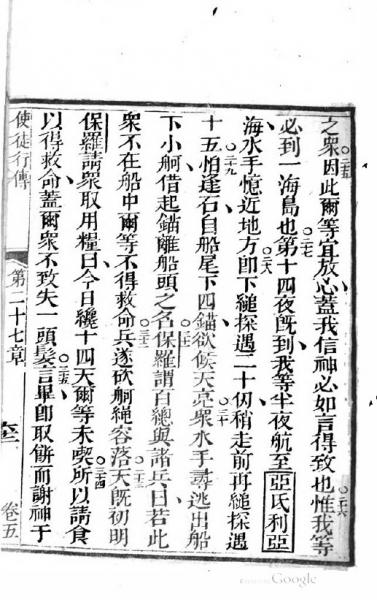 之衆○二五因此爾等宜放心蓋我信神必如言得致也○二六惟我等
必到一海島也○二七第十四夜既到我等半夜航至亞氏利亞
海水手憶近地方○二八即下縋探遇二十仞稍走前再縋探遇
十五○二九怕逢石自船尾下四錨欲候天亮○三十衆水手尋逃出船
下小舸借起錨離船頭之名○三一保羅謂百總與諸兵曰若此
衆不在船中爾等不得救命○三二兵遂砍舸繩容落○三三天既初明
保羅請衆取用糧曰今日纔十四天爾等未喫○三四所以請食
以得救命蓋爾衆不致失一頭髮○三五言畢即取餅而謝神于
使徒行傳
第二十七章
卷五
Google